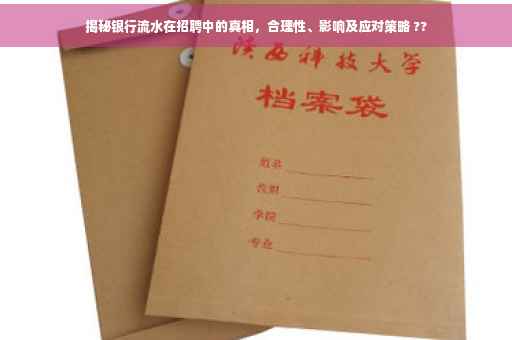 揭秘银行流水在招聘中的真相，合理性、影响及应对策略 ??
陕西科技大学
档案袋
姓名
学院
专业